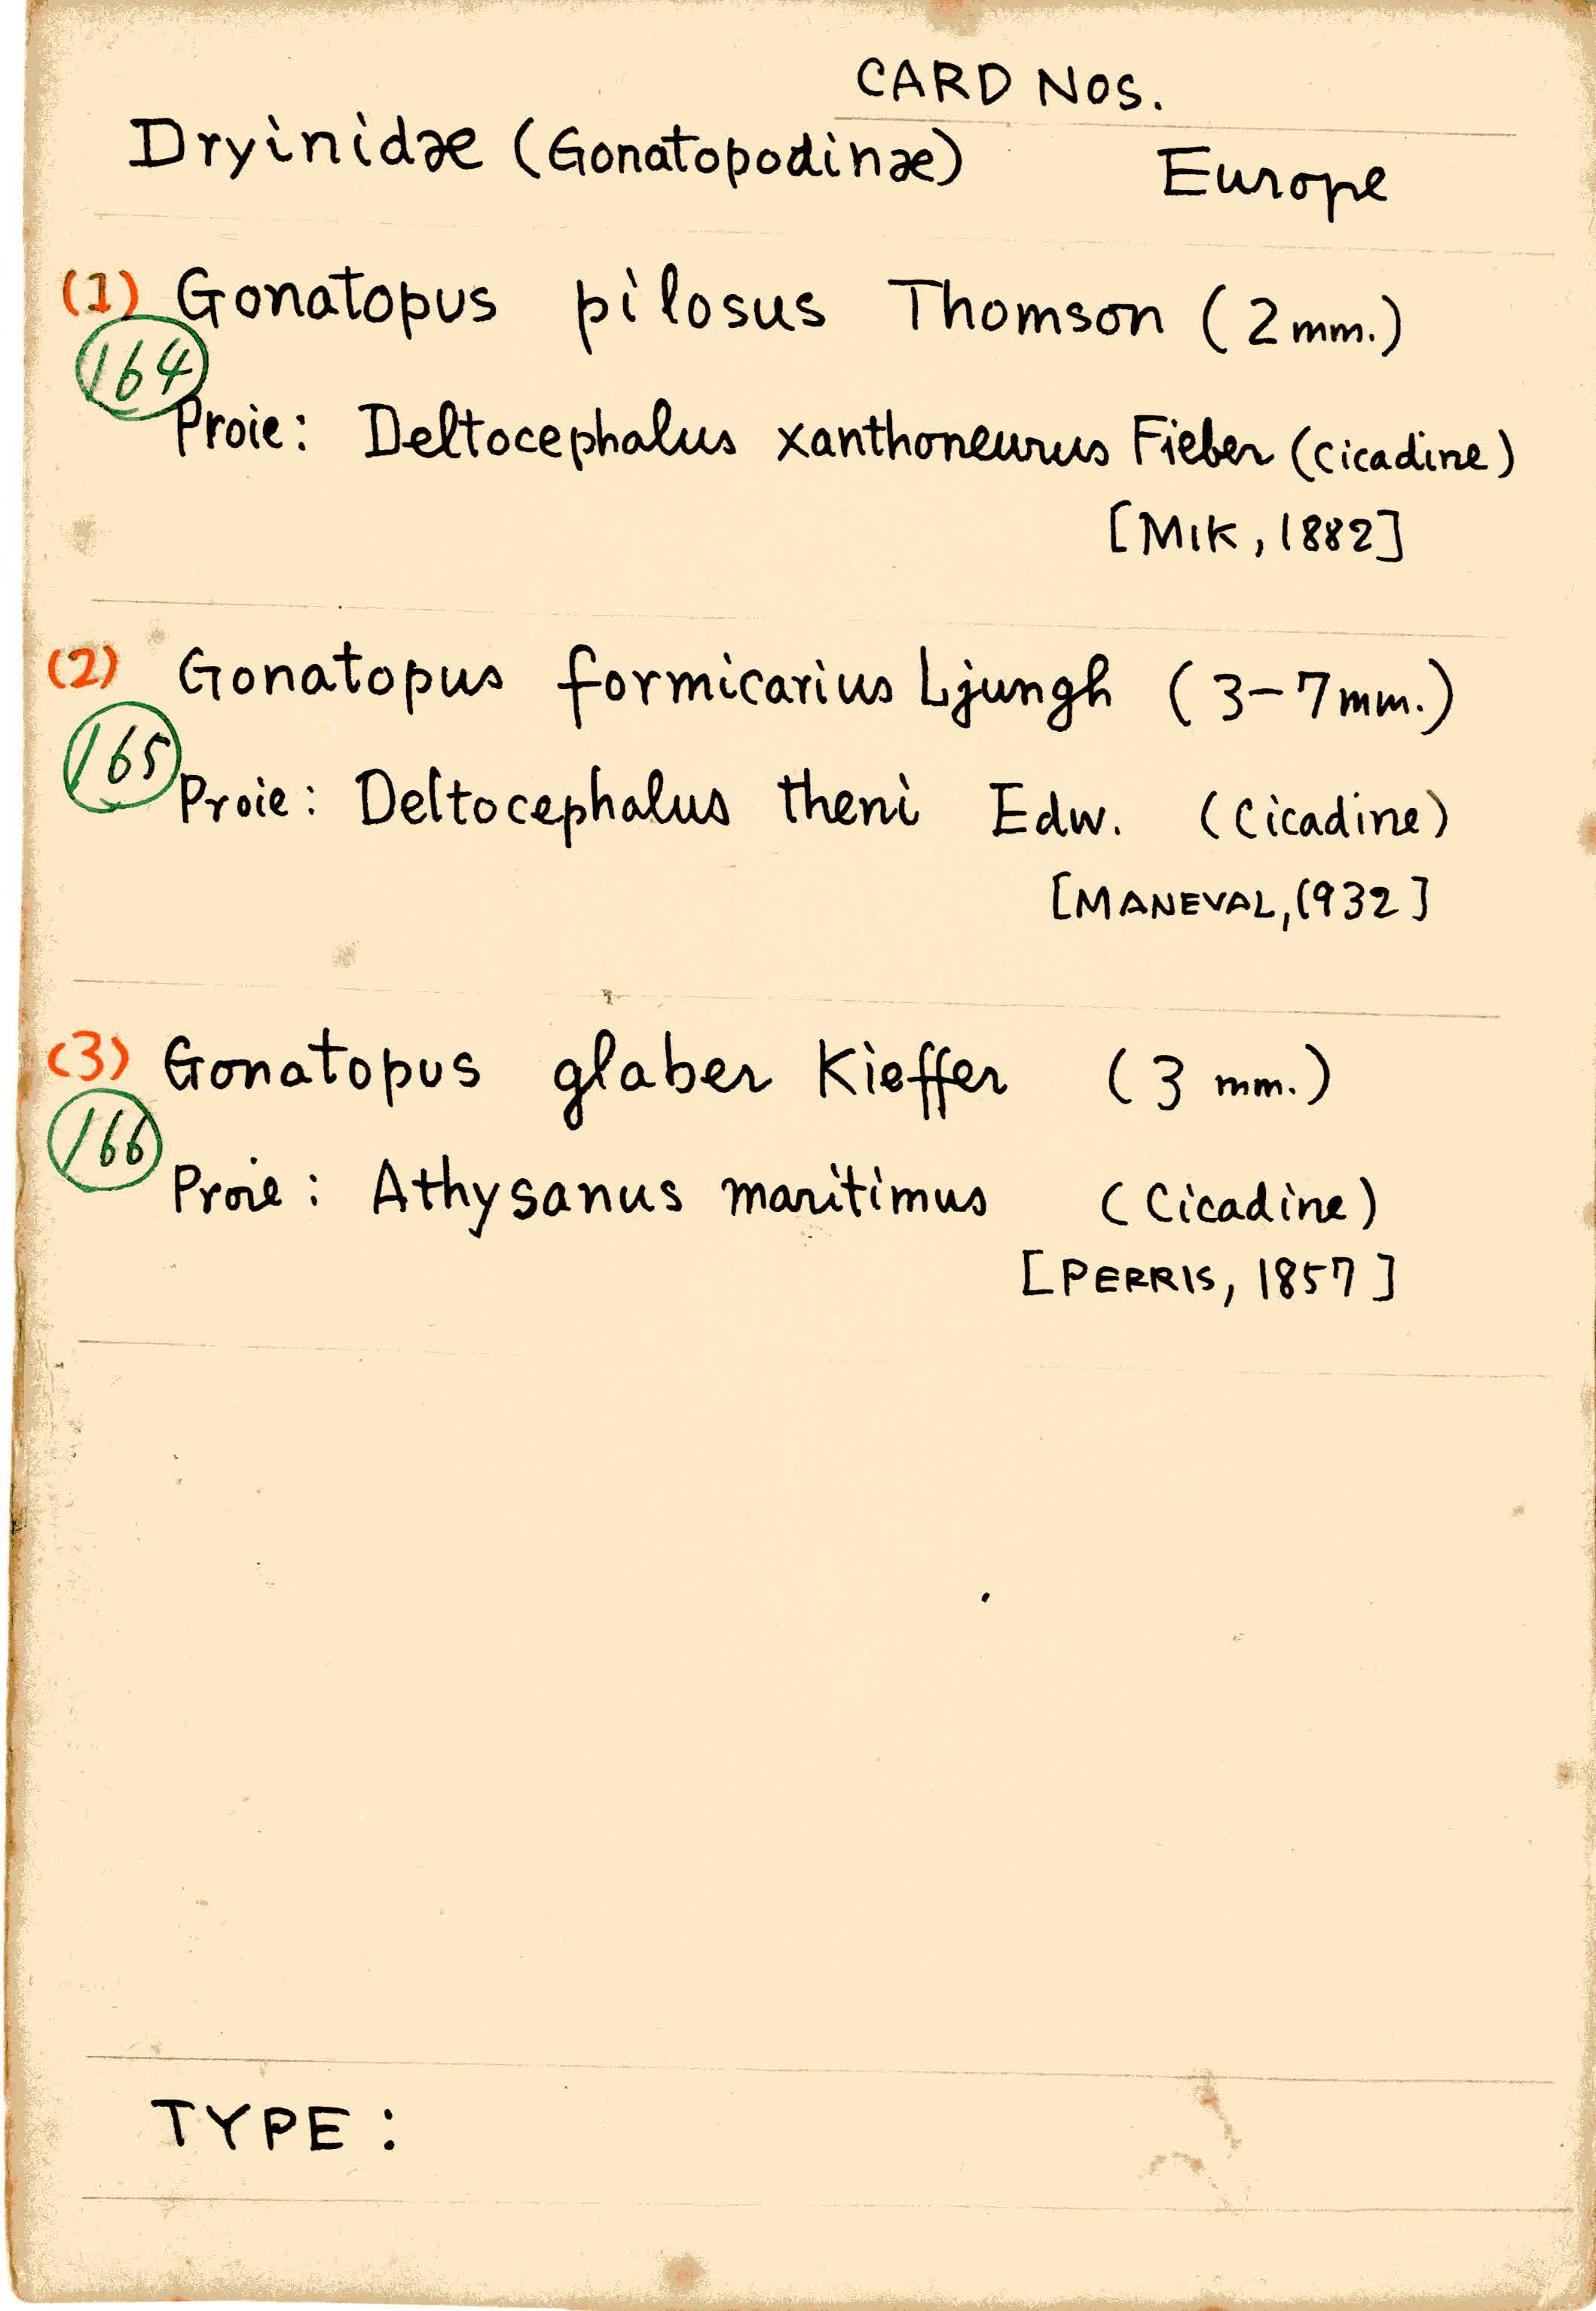 CARD NOS.
Dryinidæ (Gonatopodinæ) Europe
(1) Gonatopus pilosus Thomson (2mm.)
164
Proie: Deltocephalus xanthoneurus Fieber (Cicadine)
[MIK, 1882]
(2) Gonatopus formicarius Ljungh (3-7mm.)
165
Proie: Deltocephalus theni Edw. (Cicadine)
[MANEVAL, 1932]
(3) Gonatopus glaber Kieffer (3 mm.)
166
Proie: Athysanus maritimus (Cicadine)
[PERRIS, 1857]
TYPE: